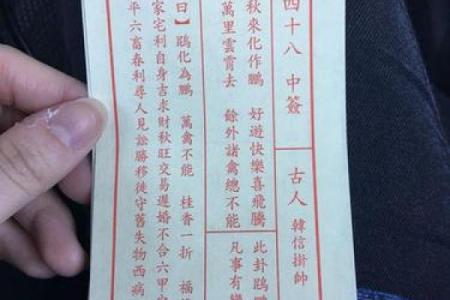 四十八 中簽
古人 韓信掛帥
秋來化作鵬 好遊快樂喜飛騰
萬里雲霄去 餘外諸禽總不能
此卦鵾
凡事有變
曰】鵾化為鵬 萬禽不能 桂香一折 福
家宅利自身吉求財秋旺交易遲婚不合六甲
平六畜春利尋人見訟勝移徙守舊失物西病